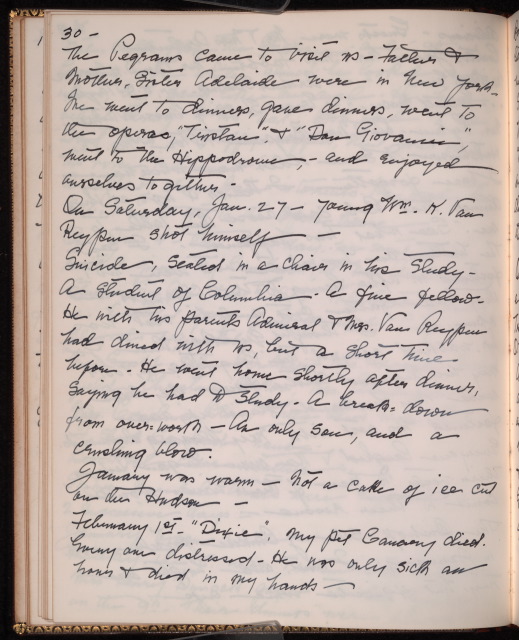 30 -
The Pegrams came to visit us - Father &
Mother, Sister Adelaide were in New York.
We went to dinners, gave dinners, went to
the operas, "Tristan" & "Don Giovanni",
went to the Hippodrome, - and enjoyed
ourselves together -
On Saturday, Jan. 27 - young Wm. K. Van
Reypen shot himself -
Suicide, seated in a chair in his study -
A student of Columbia - A fine fellow -
He with his parents Admiral & Mrs. Van Reypen
had dined with us, but a short time
before - He went home shortly after dinner,
saying he had to study - A break-down
from over-work - An only son, and a
crushing blow.
January was warm - Not a cake of ice cut
on the Hudson -
February 1st - "Dixie", my pet Canary died.
Every one distressed - He was only sick an
hour & died in my hands -